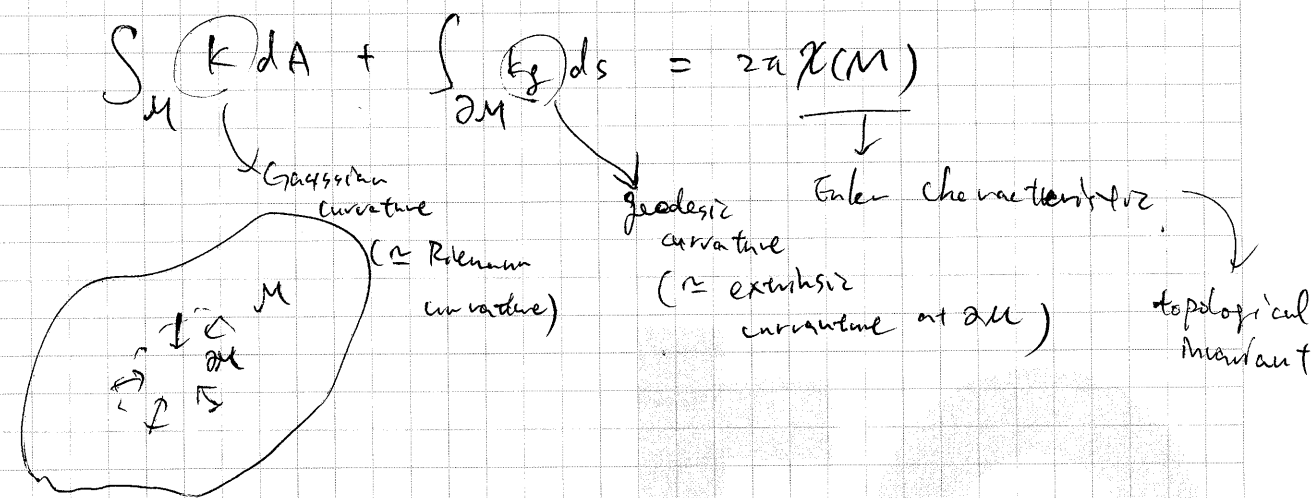 ∫_M K dA + ∫_∂M kg ds = 2π χ(M)
Gaussian
curvature
(≃ Riemann
curvature)
geodesic
curvature
(≃ extrinsic
curvature at ∂M)
Euler characteristic
topological
invariant
M
∂M